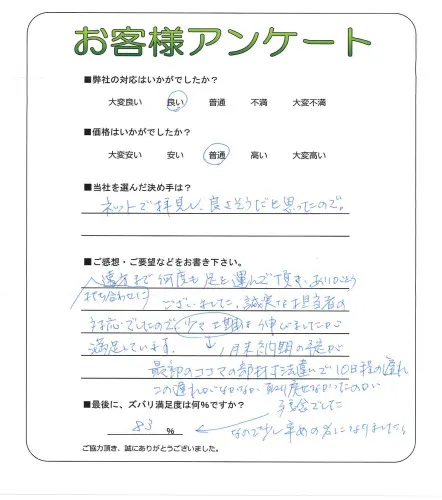 お客様アンケート
■弊社の対応はいかがでしたか?
大変良い 良い 普通 不満 大変不満
■価格はいかがでしたか?
大変安い 安い 普通 高い 大変高い
■当社を選んだ決め手は?
ネットで拝見し、良さそうだと思ったので。
■ご感想・ご要望などをお書き下さい。
遠方まで何度も足を運んで頂き、ありがとう
打ち合わせに
ございました。誠実な担当者の
対応でしたので 少々工期は伸びましたが
満足しています。 ↓ 月末納期の予定が
最初のココマの部材寸法違いで10日程の遅れ
この遅れがなかなか取り戻せなかったのが
残念でした
■最後に、ズバリ満足度は何%ですか?
83 %
なので少し辛めの%になりました。
ご協力頂き、誠にありがとうございました。